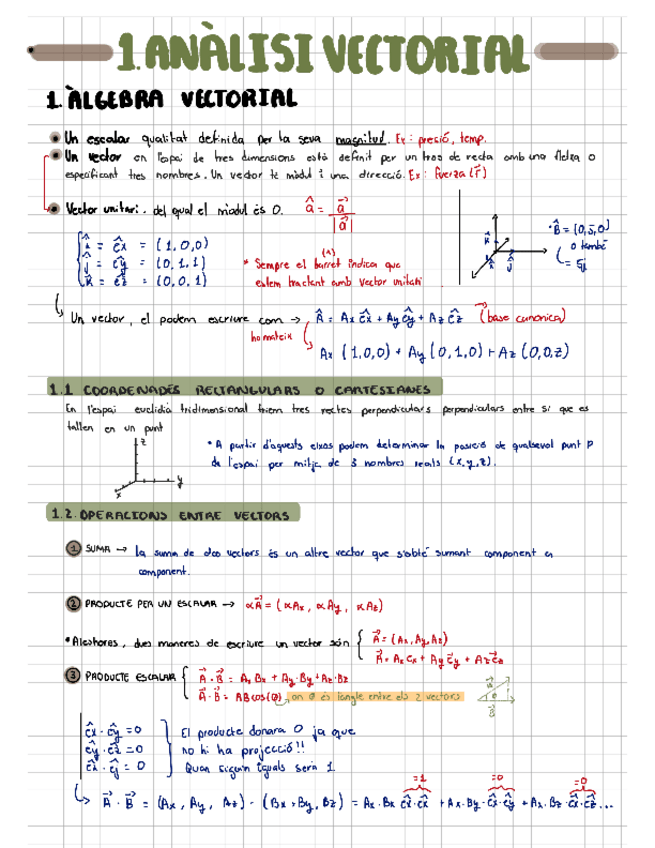 1. ANÀLISI VECTORIAL
1. ÀLGEBRA VECTORIAL
• Un escalar qualitat definida per la seva magnitud. Ex: presió, temp.
• Un vector en l'espai de tres dimensions està definit per un tros de recta amb una fletxa o
especificant tres nombres. Un vector té mòdul i una direcció. Ex: Fuerza (F⃗)
• Vector unitari. del qual el mòdul és 0. â = a⃗ / |a⃗|
î = êx = (1,0,0)
ĵ = êy = (0,1,1)
k̂ = êz = (0,0,1)
(^)
* Sempre el barret indica que
estem tractant amb vector unitari
• B⃗ = (0,5,0)
o també
= 5j
Un vector, el podem escriure com → A⃗ = Ax êx + Ay êy + Az êz (base canonica)
ho mateix
Ax (1,0,0) + Ay (0,1,0) + Az (0,0,z)
1.1 COORDENADES RECTANGULARS O CARTESIANES
En l'espai euclidià tridimensional triem tres rectes perpendiculars perpendiculars entre si que es
tallen en un punt
z
y
x
• A partir d'aquests eixos podem determinar la posició de qualsevol punt P
de l'espai per mitja de 3 nombres reals (x,y,z).
1.2. OPERACIONS ENTRE VECTORS
1 SUMA → la suma de dos vectors és un altre vector que s'obté sumant component a
component.
2 PRODUCTE PER UN ESCALAR → αA⃗ = (αAx, αAy, αAz)
• Aleshores, dues maneres de escriure un vector són { A⃗ = (Ax, Ay, Az)
A⃗ = Ax êx + Ay êy + Az êz
3 PRODUCTE ESCALAR { A⃗ · B⃗ = Ax Bx + Ay·By + Az·Bz
A⃗ · B⃗ = AB cos(θ) on θ és l'angle entre els 2 vectors
êx · êy = 0
êy · êz = 0
êx · êj = 0
El producte donara 0 ja que
no hi ha projecció!!
Quan siguin iguals serà 1
=1 =0 =0
A⃗ · B⃗ = (Ax, Ay, Az) · (Bx, By, Bz) = Ax·Bx êx·êx + Ax·By·êx·êy + Ax·Bz êx·êz...